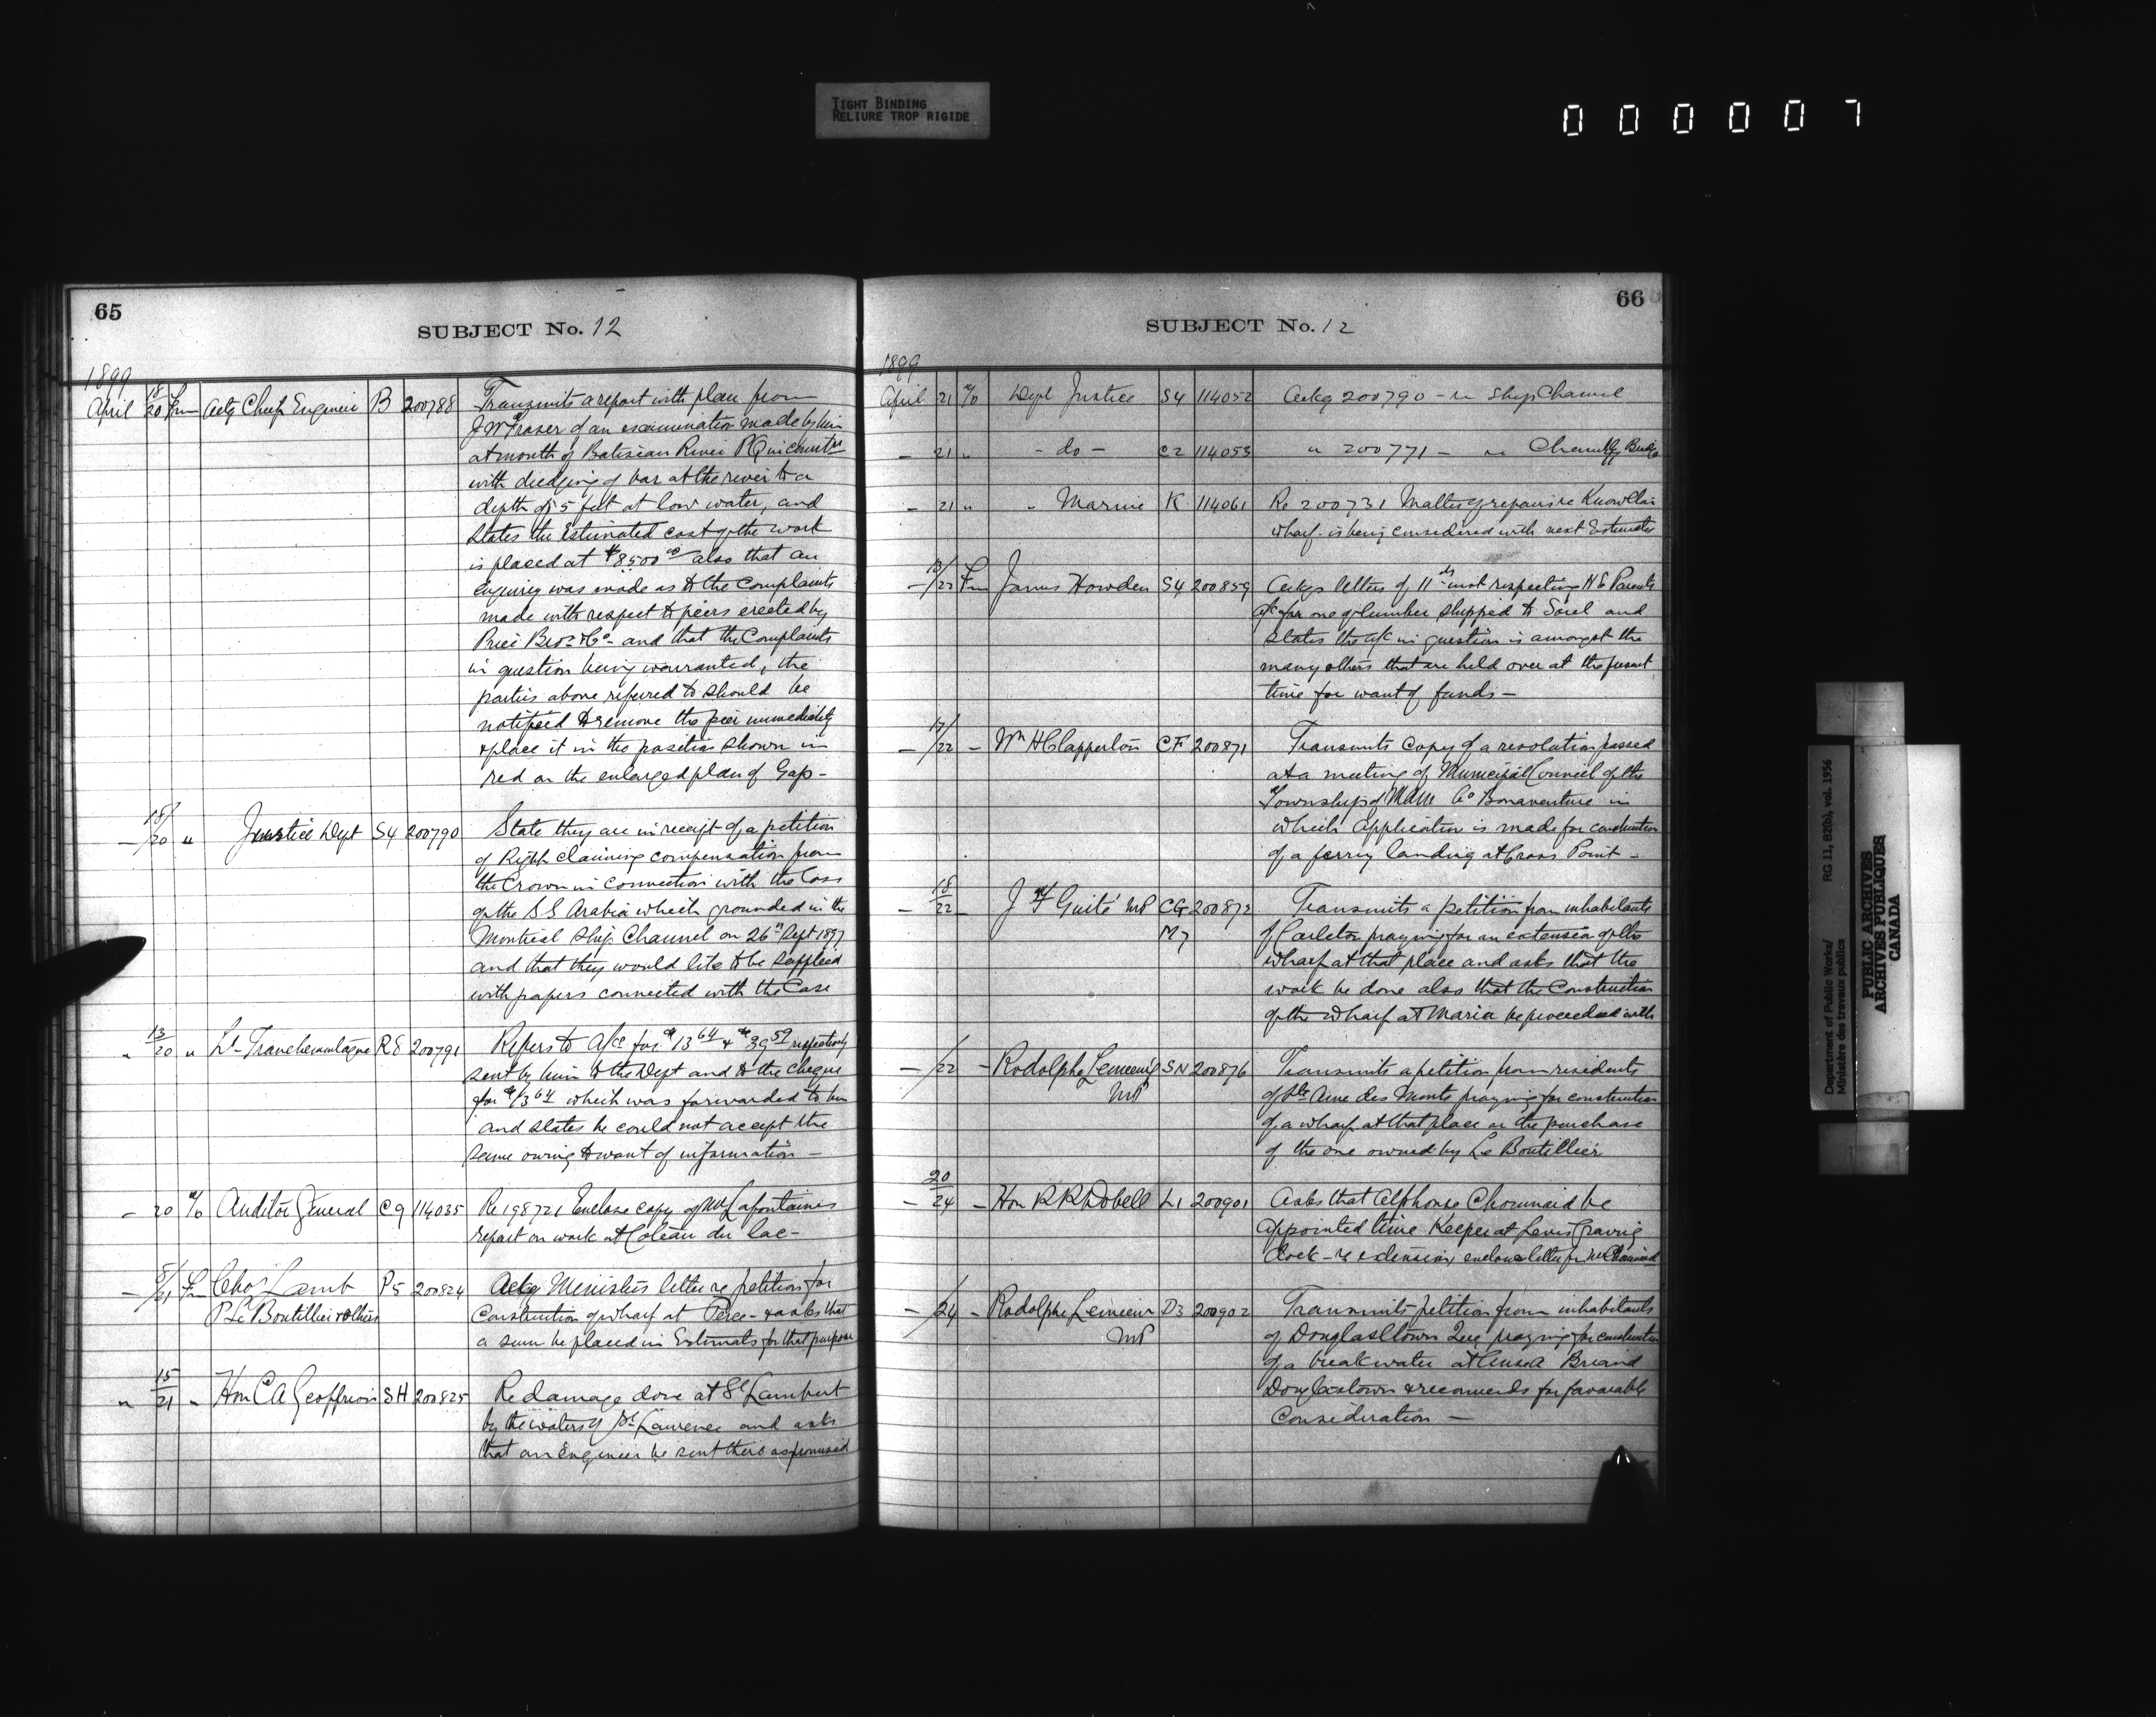 TIGHT BINDING
RELIURE TROP RIGIDE
0 0 0 0 0 7
65
SUBJECT No. 12
1899
April 18/20 Fm Actg Chief Engineer B 200788 Transmits a report with plan from
J W Fraser of an examination made by him
at mouth of Batiscan River PQ in connectn
with dredging of bar at the river to a
depth of 5 feet at low water, and
states the Estimated cost of the work
is placed at $8500 00 also that an
enquiry was made as to the Complaints
made with respect to piers erected by
Price Bros & Co - and that the Complaints
in question being warranted, the
parties above referred to should be
notified to remove the pier immediately
& place it in the position shown in
red on the enlarged plan of Gap -
- 18/20 " Justice Dept S4 200790 State they are in receipt of a petition
of Right claiming compensation from
the Crown in connection with the loss
of the S S Arabia which grounded in the
Montreal Ship Channel on 26th Sept 1897
and that they would like to be supplied
with papers connected with the Case
" 13/20 " Lt- Tranchemontagne R8 200791 Refers to A/cs for $13 64 & $39 59 respectively
sent by him to the Dept and to the cheque
for $13 64 which was forwarded to him
and states he could not accept the
same owing to want of information -
- 20 to Auditor General C9 114035 Re 198721 Enclose copy of Mr Lafontaines
report on work at Coteau du lac -
- 8/21 Fm Chas Lamb P5 200824 Ackg Ministers letter re petition for
P Le Boutillier & others Construction of wharf at Perce - & asks that
a sum be placed in Estimates for that purpose
" 15/21 " Hon C A Geoffrion SH 200825 Re damage done at St Lambert
by the waters of St Lawrence and asks
that an Engineer be sent there as promised
66
SUBJECT No. 12
1899
April 21 to Dept Justice S4 114052 Ackg 200790 - re Ship Channel
- 21 " - do - C2 114053 " 200771 - re Chambly Bridge
- 21 " " Marine K 114061 Re 200731 Matter of repairs re Knowlton
wharf - is being considered with next Estimates
- /22 Fm James Howden S4 200859 Ackgs letters of 11th inst respecting H E Parents
a/c for one of lumber shipped to Sorel and
states the a/c in question is amongst the
many others that are held over at the present
time for want of funds -
- 17/22 - Wm H Clapperton CF 200871 Transmits copy of a resolution passed
at a meeting of Municipal Council of the
Township of Mann Co Bonaventure in
which application is made for construction
of a ferry landing at Cross Point -
- 18/22 - J F Guité MP CG 200872 Transmits a petition from inhabitants
M7 of Carleton praying for an extension of the
wharf at that place and asks that the
work be done also that the Construction
of the wharf at Maria be proceeded with
- /22 - Rodolphe Lemieux SN 200876 Transmits a petition from residents
MP of Ste Anne des Monts praying for construction
of a wharf at that place or the purchase
of the one owned by Le Boutillier
- 20/24 - Hon R R Dobell L1 200901 Asks that Alphonse Chouinard be
appointed time Keeper at Levis Graving
dock - re extension, encloses letter fm Mr Chouinard
- /24 - Rodolphe Lemieux D3 200902 Transmits petition from inhabitants
MP of Douglasstown Que praying for construction
of a breakwater at Ansea Briand
Douglastown & recomends for favorable
Consideration -
Department of Public Works/ RG 11, B2(b), vol. 1956
Ministère des travaux publics
PUBLIC ARCHIVES
ARCHIVES PUBLIQUES
CANADA